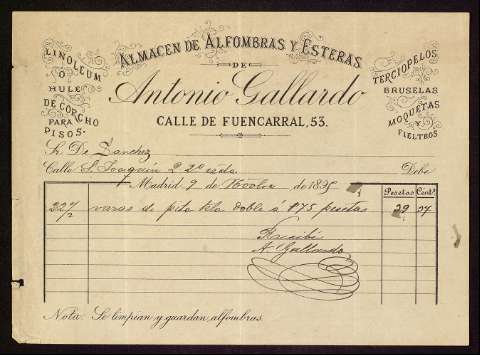 ALMACEN DE ALFOMBRAS Y ESTERAS
DE
Antonio Gallardo
CALLE DE FUENCARRAL, 53.
LINOLEUM
O
HULE
DE CORCHO
PARA
PISOS.
TERCIOPELOS
BRUSELAS
MOQUETAS
Y
FIELTROS
Sr. De Sanchez
Calle S. Joaquin 2 2º izda. Debe
Madrid 9 de de 189
Pesetas Centˢ
22 1/2 varas de pita tela doble á 1'75 pesetas 39 37
Recibi
A. Gallardo
Nota: Se limpian y guardan alfombras.